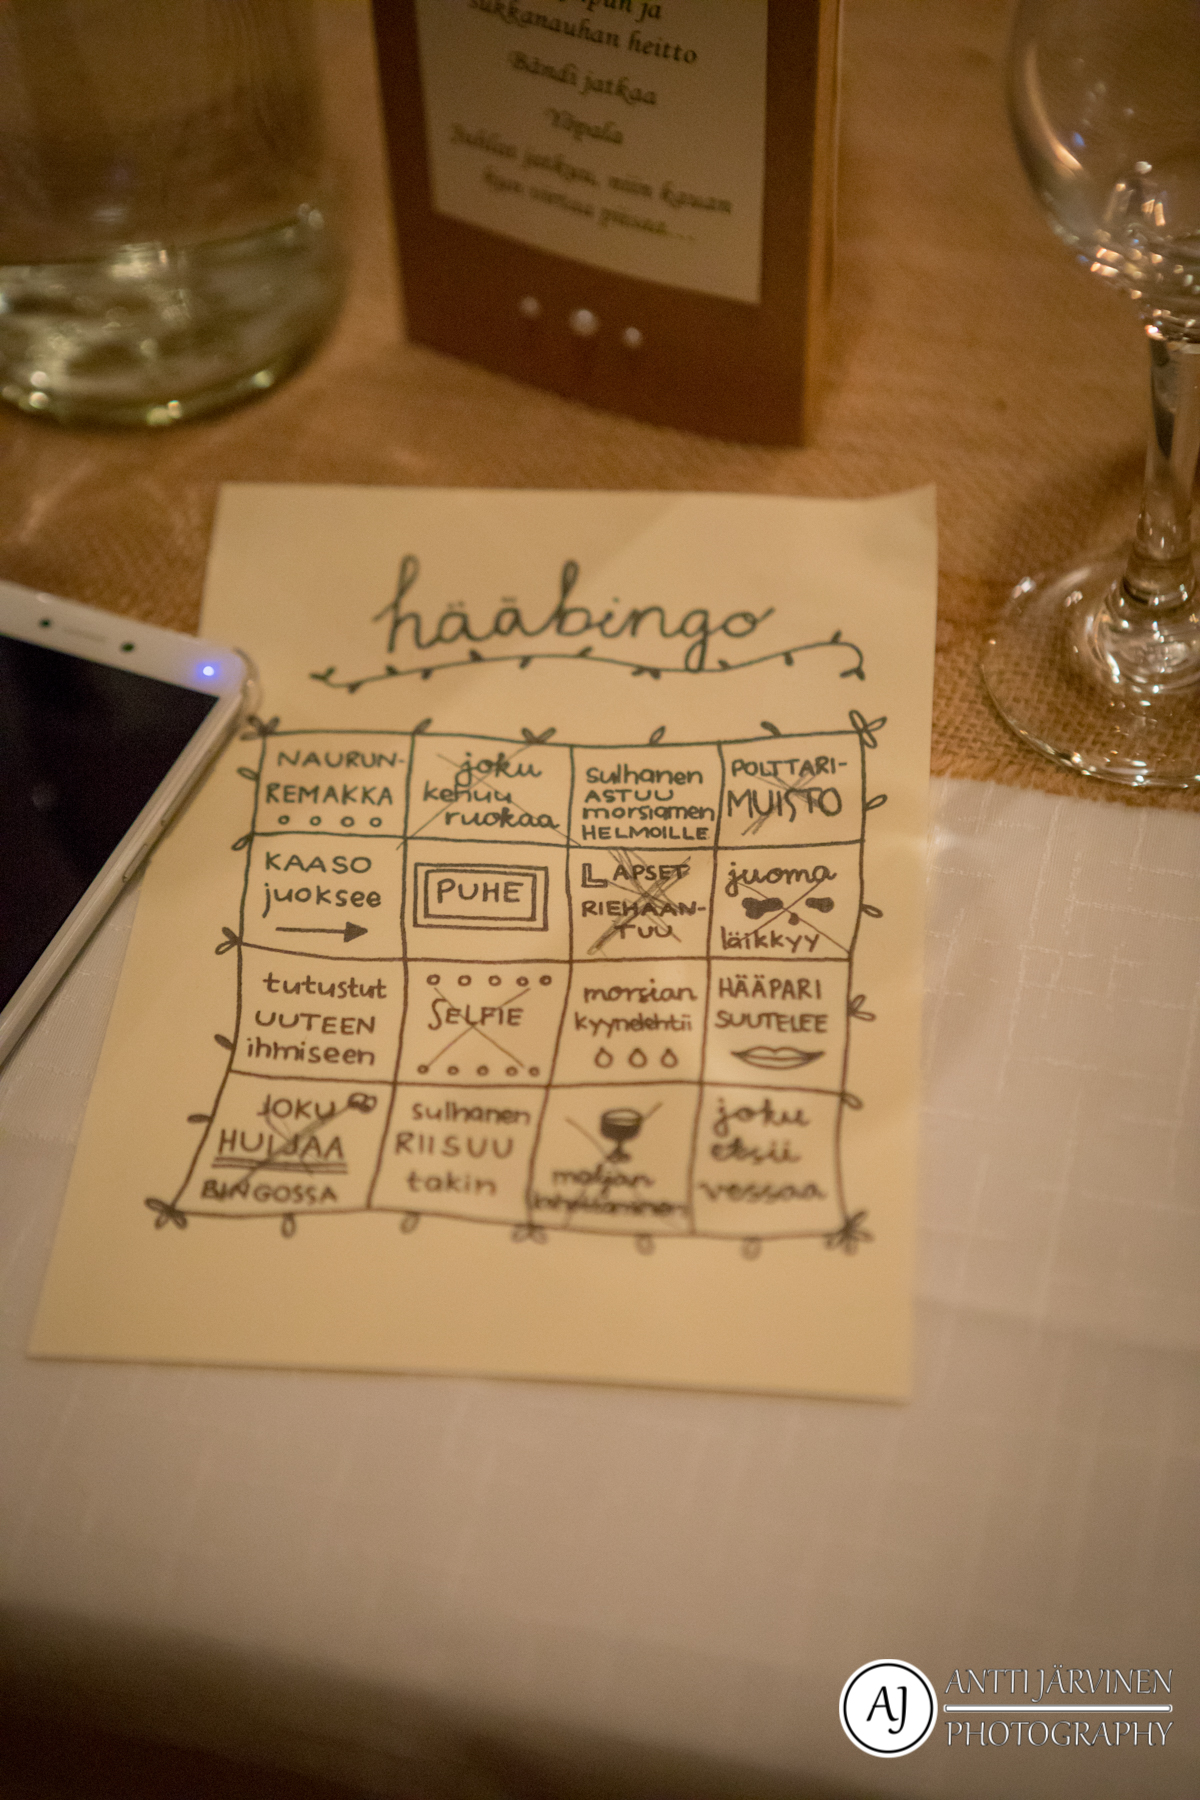 sukkanauhan heitto
Bändi jatkaa
Yöpala
Juhlat jatkuu, niin kauan
hääbingo
NAURUN-
REMAKKA
joku
kehuu
ruokaa
sulhanen
ASTUU
morsiamen
HELMOILLE
POLTTARI-
MUISTO
KAASO
juoksee
PUHE
LAPSET
RIEHAAN-
TUU
juoma
läikkyy
tutustut
UUTEEN
ihmiseen
SELFIE
morsian
kyynelehtii
HÄÄPARI
SUUTELEE
JOKU
HUIJAA
BINGOSSA
sulhanen
RIISUU
takin
maljan
joku
etsii
vessaa
AJ
ANTTI JÄRVINEN
PHOTOGRAPHY